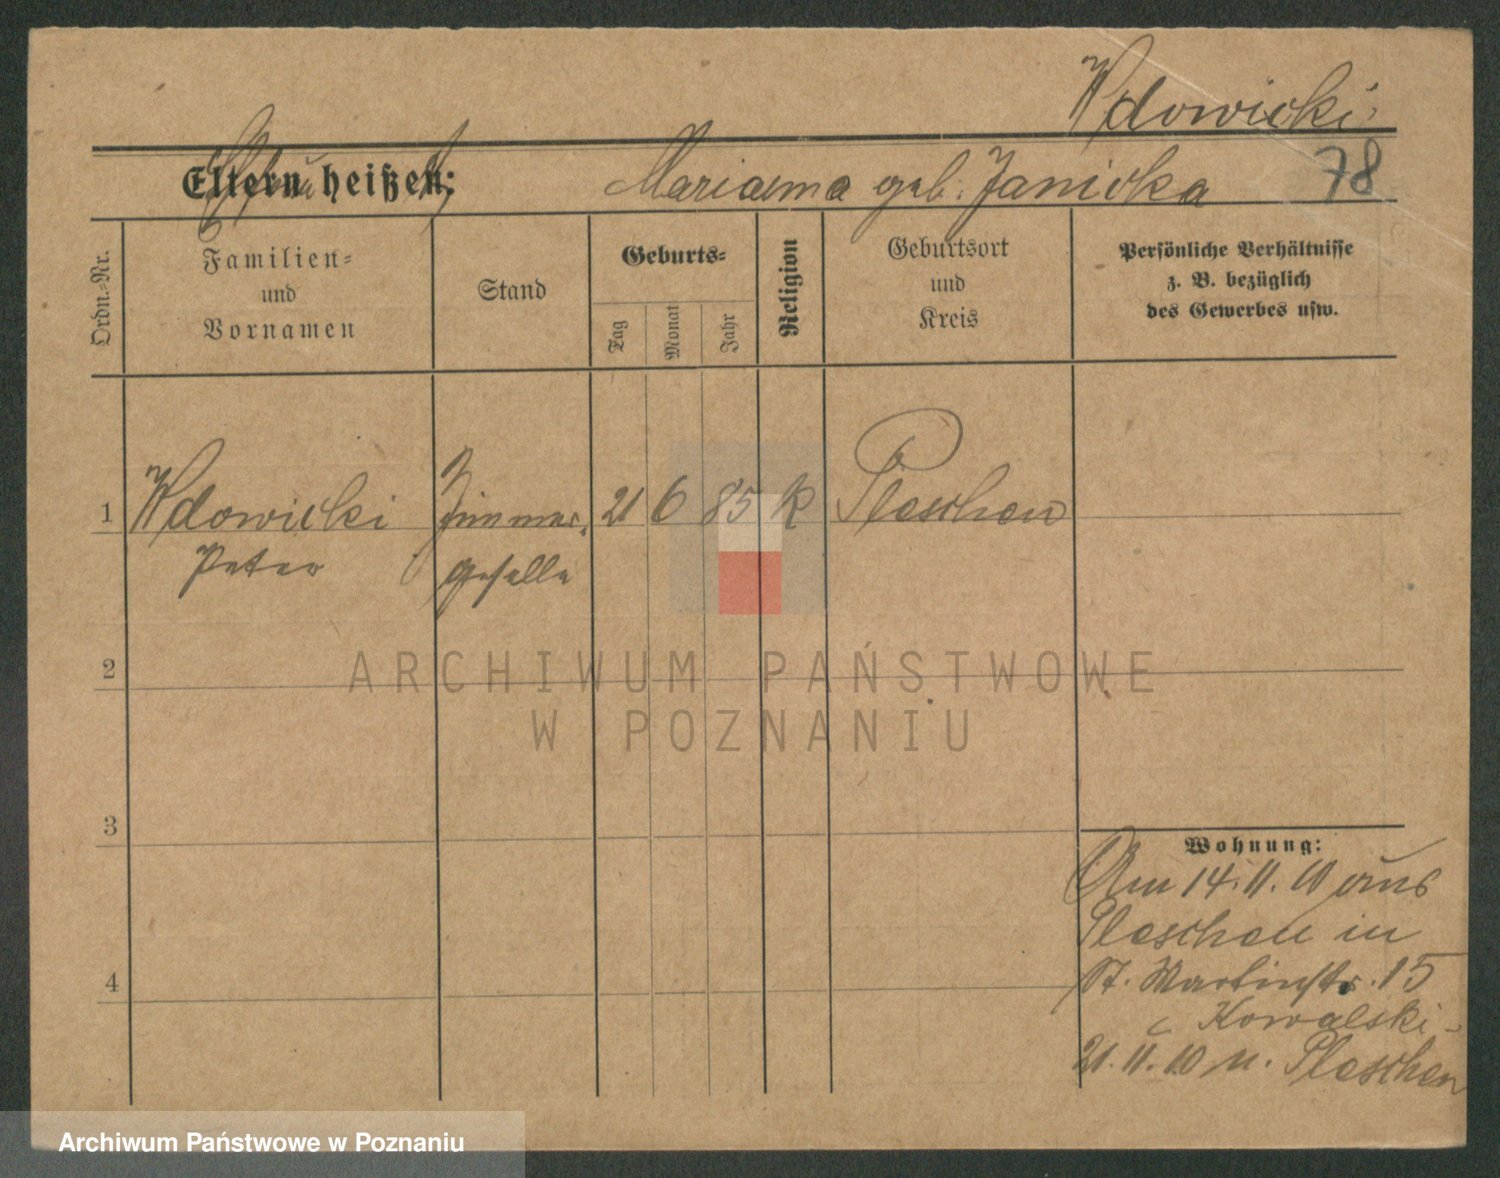 Wdowicki
Eltern heißen: Marianna geb. Janicka 78
Ordn.-Nr.
Familien-
und
Vornamen
Stand
Geburts-
Tag
Monat
Jahr
Religion
Geburtsort
und
Kreis
Persönliche Verhältnisse
z. B. bezüglich
des Gewerbes usw.
1 Wdowicki Zimmer- 21 6 85 k Pleschen
Peter geselle
2
ARCHIWUM PAŃSTWOWE
W POZNANIU
3
Wohnung:
Am 14.11.10 aus
Pleschen in
St. Martinstr. 15
Kowalski
21.11.10 n. Pleschen
4
Archiwum Państwowe w Poznaniu